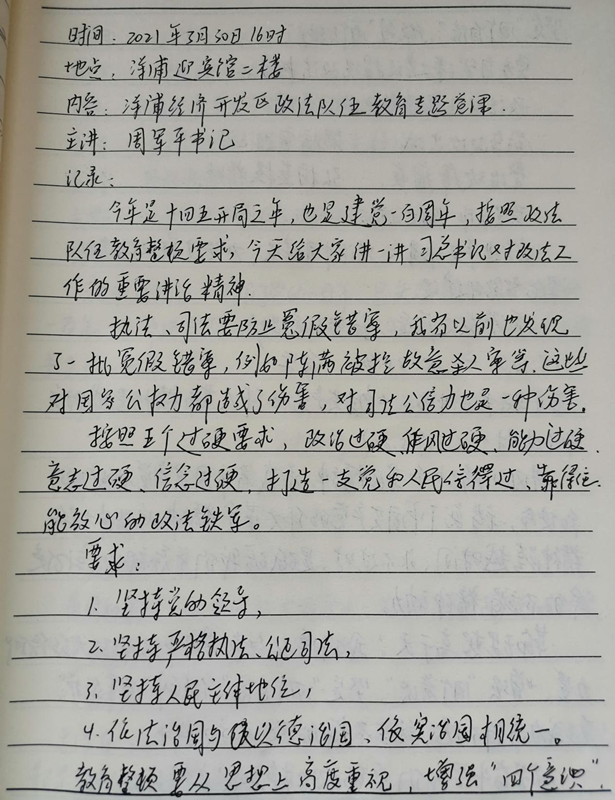 时间：2021年3月30日16时
地点：洋浦迎宾馆二楼
内容：洋浦经济开发区政法队伍教育专题党课.
主讲：周军平书记
记录：
今年是十四五开局之年，也是建党一百周年，按照政法
队伍教育整顿要求，今天给大家讲一讲习总书记对政法工
作的重要讲话精神.
执法、司法要防止冤假错案，我省以前也发现
了一批冤假错案，例如陈满被控故意杀人案等.这些
对国家公权力都造成了伤害，对司法公信力也是一种伤害.
按照五个过硬要求，政治过硬、作风过硬、能力过硬.
意志过硬、信念过硬，打造一支党和人民信得过、靠得住
能放心的政法铁军。
要求：
1. 坚持党的领导，
2. 坚持严格执法、公正司法，
3. 坚持人民主体地位，
4. 依法治国与以德治国、依宪治国相统一。
教育整顿要从思想上高度重视，增强“四个意识”.